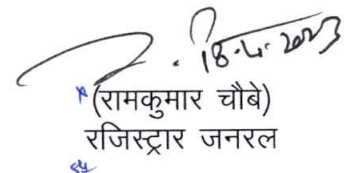 18.4.2023
(रामकुमार चौबे)
रजिस्ट्रार जनरल